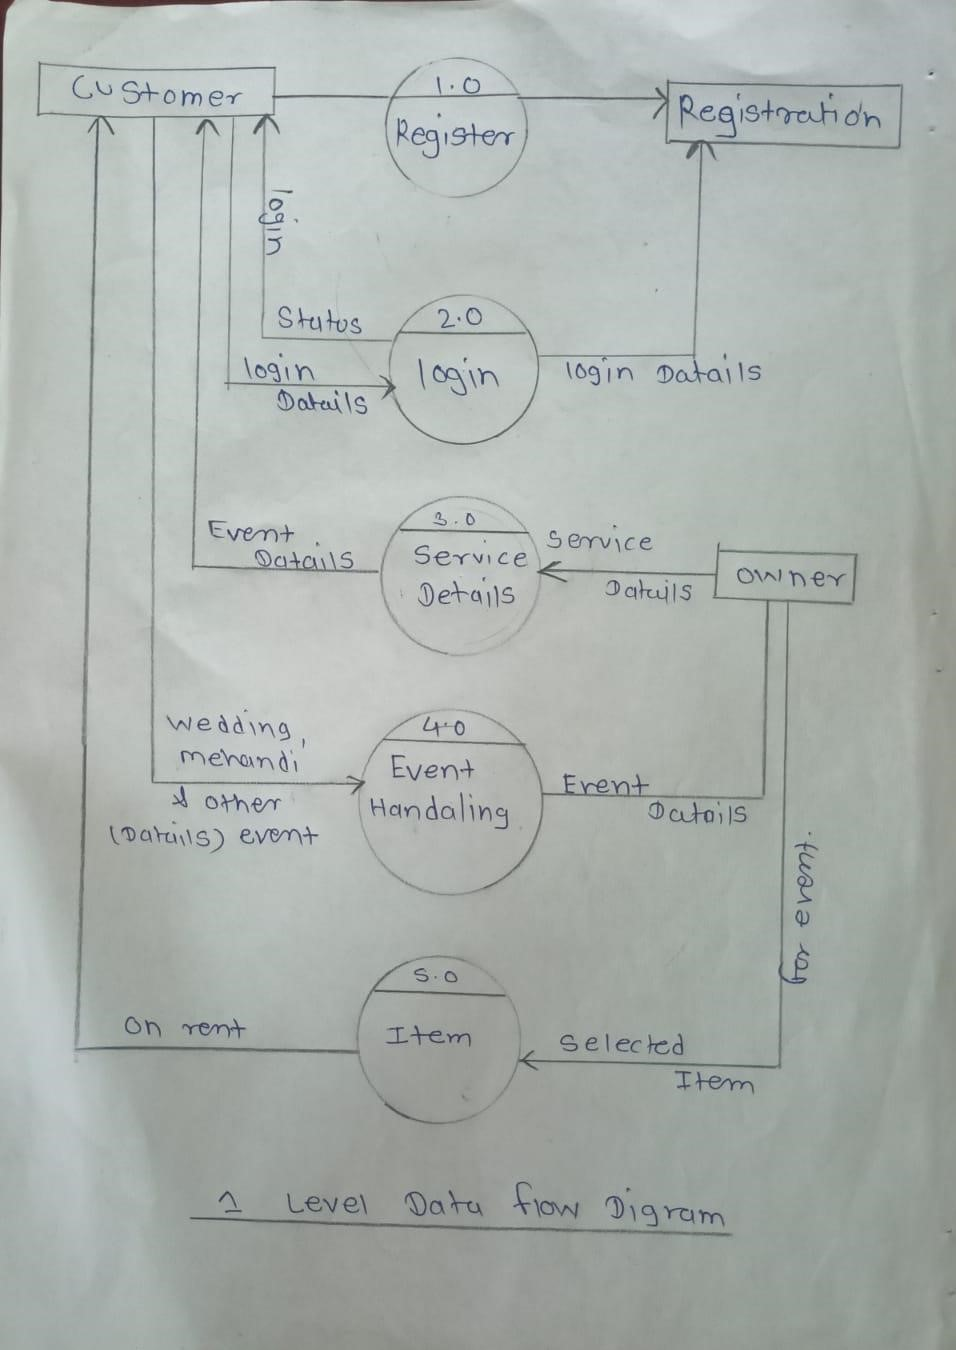 Customer
1.0
Register
Registration
login
Status
2.0
login
login
Datails
login Datails
3.0
Service
Details
Event
Datails
Service
Datails
owner
wedding,
mehandi
& other
(Datails) event
4.0
Event
Handaling
Event
Datails
for event.
5.0
Item
On rent
Selected
Item
1 Level Data flow Digram